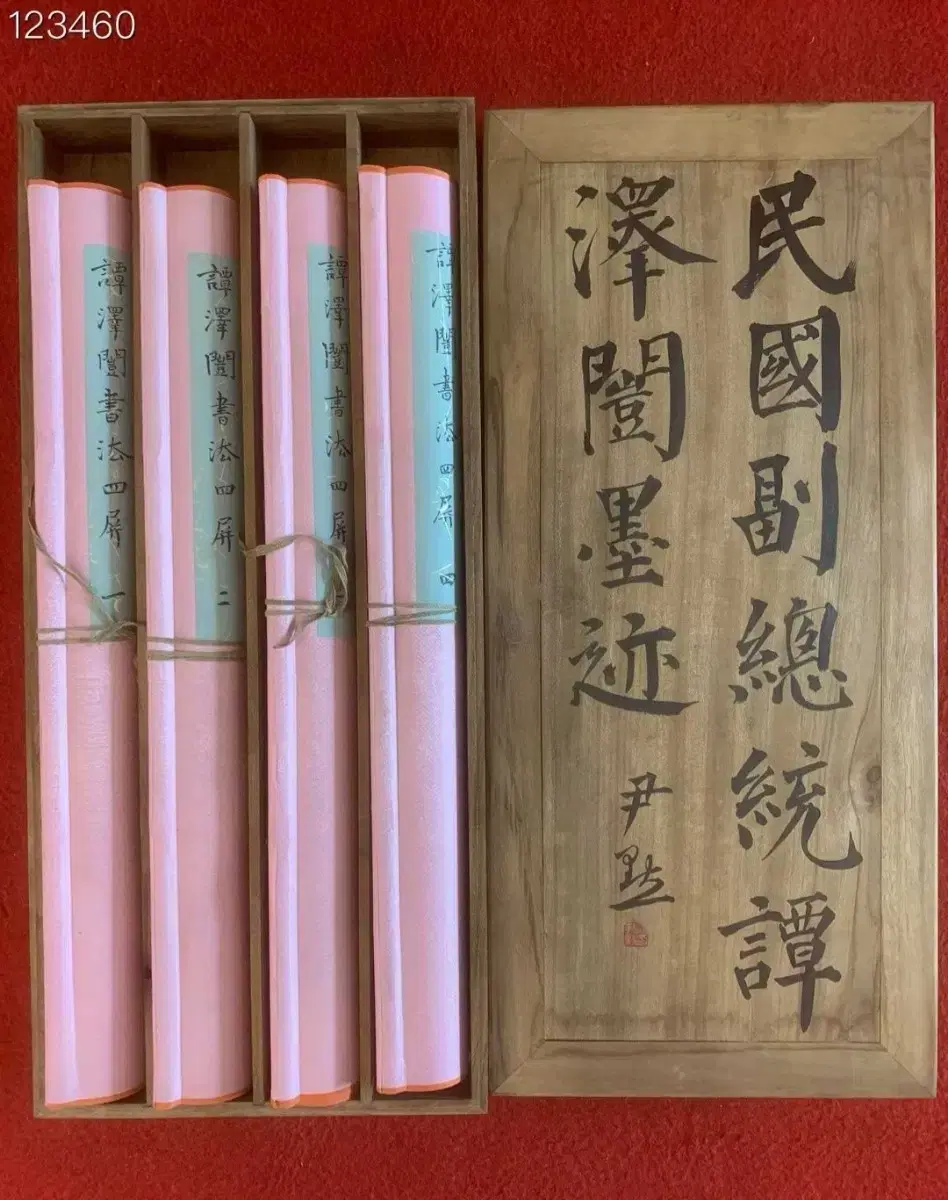 123460
民國副總統譚
澤闓墨迹
尹默
譚澤闓書法四屏 一
譚澤闓書法四屏 二
譚澤闓書法四屏
譚澤闓書法四屏 四